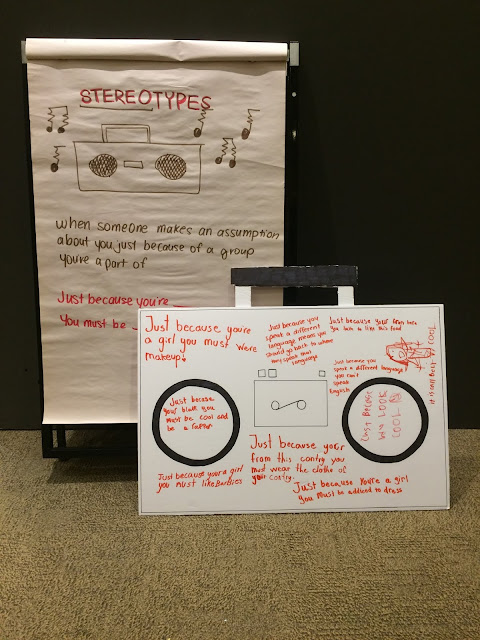 STEREOTYPES
when someone makes an assumption
about you just because of a group
you're a part of
Just because you're
You must be
Just because you're
a girl you must were
makeup
Just because you
speak a different
language means you
should go back to where
they speak that
language
Just because your from here
you have to like this food
Just because you
speak a different language
you can't
speak
English
Just becase
your black you
must be cool and
be a rapper
Just because your
from this contry you
must wear the clothe of
your contry.
Just because your a girl
you must like Barbies
Just because you're a girl
you must be addiced to dress
you LOOK
COOL